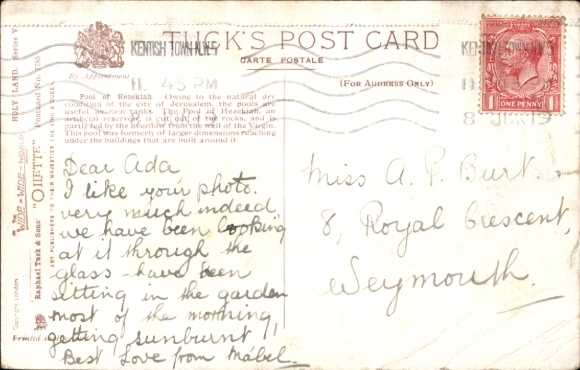 TUCK'S POST CARD
CARTE POSTALE
(FOR ADDRESS ONLY)
By Appointment
KENTISH TOWN N.W.5
11. 45 PM
8 JUN 19
KENTISH TOWN N.W.5
11.
8 JUN 19
ONE PENNY
Pool of Hezekiah Owing to the natural dry
condition of the city of Jerusalem, the pools are
useful as rain tanks. The Pool of Hezekiah, an
artificial reservoir, is cut out of the rocks, and is
partly fed by the overflow from the well of the Virgin.
This pool was formerly of larger dimensions reaching
under the buildings that are built around it
HOLY LAND. Series V
Postcard No.
The
"WIDE-WIDE-WORLD"
Raphael Tuck & Sons' "OILETTE"
ART PUBLISHERS TO THEIR MAJESTIES THE KING AND QUEEN
Copyright London
Printed in
Dear Ada
I like your photo.
very much indeed
we have been looking
at it through the
glass - have been
sitting in the garden
most of the morning,
getting sunburnt.
Best Love from Mabel.
Miss A. P. Burt
8, Royal Crescent,
Weymouth.